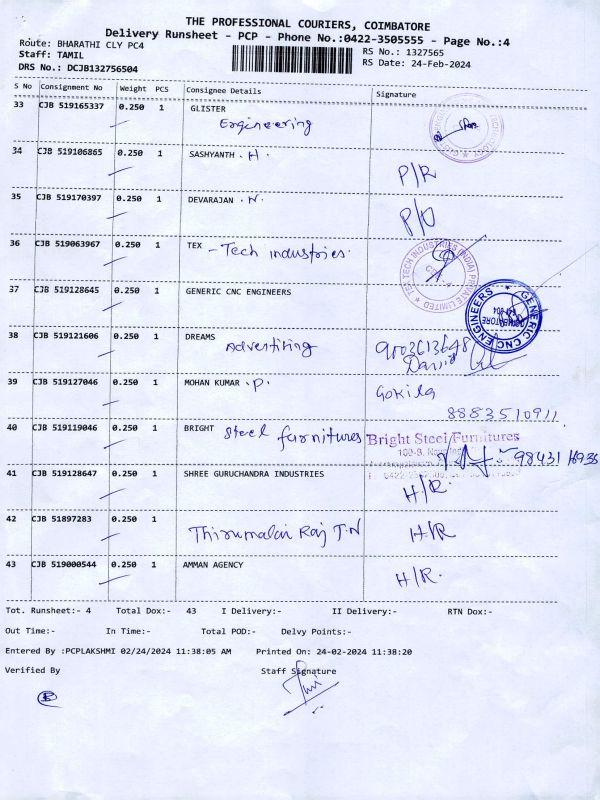 THE PROFESSIONAL COURIERS, COIMBATORE
Delivery Runsheet - PCP - Phone No.:0422-3505555 - Page No.:4
Route: BHARATHI CLY PC4
RS No.: 1327565
Staff: TAMIL
RS Date: 24-Feb-2024
DRS No.: DCJB132756504
S No Consignment No Weight PCS Consignee Details Signature
33 CJB 519165337 0.250 1 GLISTER
Engineering
34 CJB 519106865 0.250 1 SASHYANTH . H.
P/R
35 CJB 519170397 0.250 1 DEVARAJAN . N.
P/O
36 CJB 519063967 0.250 1 TEX - Tech industries.
TEX-TECH INDUSTRIES (INDIA) PRIVATE LIMITED
37 CJB 519128645 0.250 1 GENERIC CNC ENGINEERS
GENERIC CNC ENGINEERS
38 CJB 519121606 0.250 1 DREAMS
Advertising 9003613648
39 CJB 519127046 0.250 1 MOHAN KUMAR . P. Gokila
8883510911
40 CJB 519119046 0.250 1 BRIGHT Steel furnitures Bright Steel Furnitures
41 CJB 519128647 0.250 1 SHREE GURUCHANDRA INDUSTRIES
H/R.
42 CJB 51897283 0.250 1
Thirumalai Raj T.N H/R
43 CJB 519000544 0.250 1 AMMAN AGENCY
H/R.
Tot. Runsheet:- 4 Total Dox:- 43 I Delivery:- II Delivery:- RTN Dox:-
Out Time:- In Time:- Total POD:- Delvy Points:-
Entered By :PCPLAKSHMI 02/24/2024 11:38:05 AM Printed On: 24-02-2024 11:38:20
Verified By Staff Signature